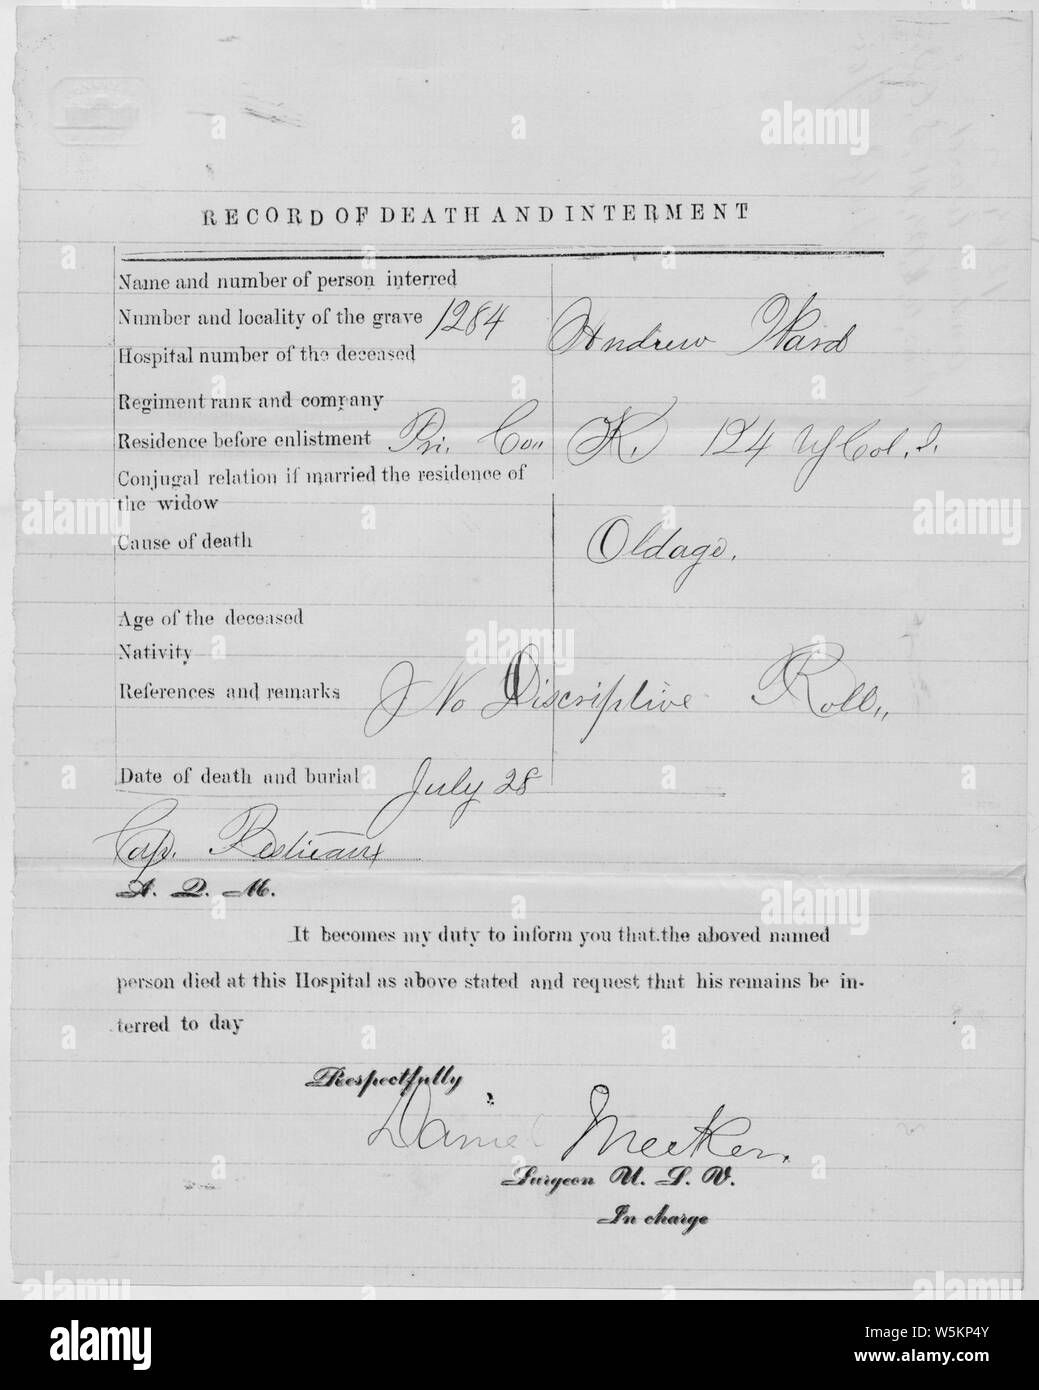 RECORD OF DEATH AND INTERMENT
Name and number of person interred
Number and locality of the grave 1284 Andrew Ward
Hospital number of the deceased
Regiment rank and company
Residence before enlistment Pri. Co,, K. 124 US Col. I.
Conjugal relation if married the residence of
the widow
Cause of death Oldage.
Age of the deceased
Nativity
References and remarks No Discriptive Roll,,
Date of death and burial July 28
Cap. Restieaux
A. Q. M.
It becomes my duty to inform you that.the aboved named
person died at this Hospital as above stated and request that his remains be in-
terred to day
Respectfully
Daniel Meeker.
Surgeon U. S. V.
In charge
alamy
Image ID: W5KP4Y
www.alamy.com